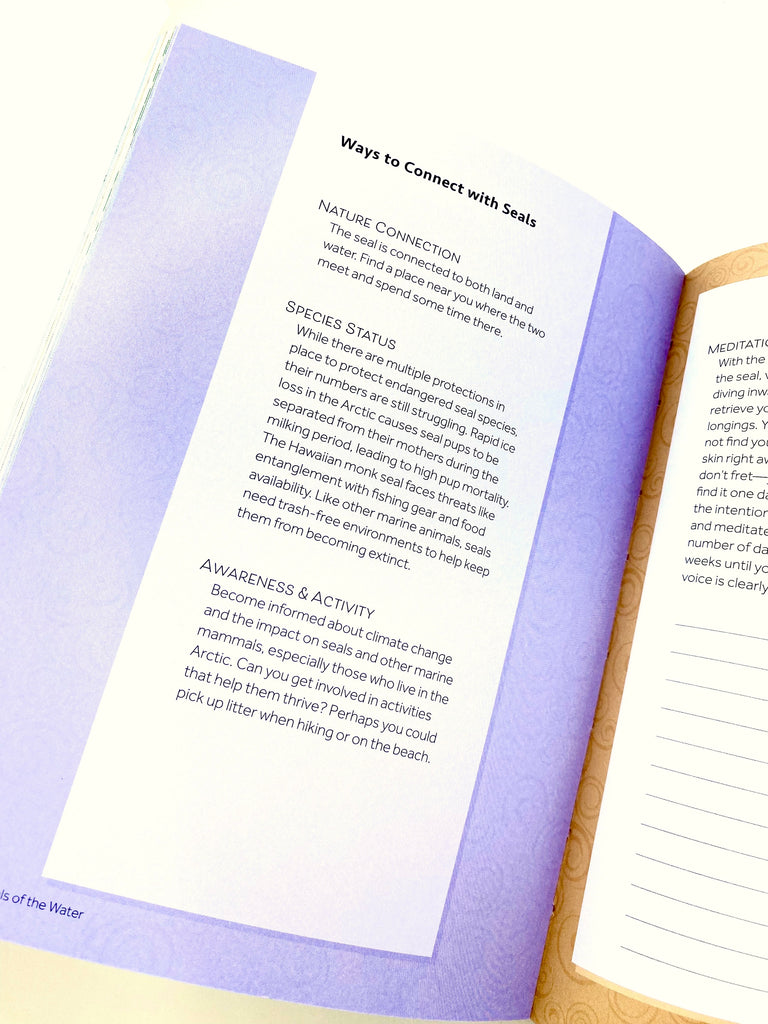 Ways to Connect with Seals
NATURE CONNECTION
The seal is connected to both land and
water. Find a place near you where the two
meet and spend some time there.
SPECIES STATUS
While there are multiple protections in
place to protect endangered seal species,
their numbers are still struggling. Rapid ice
loss in the Arctic causes seal pups to be
separated from their mothers during the
milking period, leading to high pup mortality.
The Hawaiian monk seal faces threats like
entanglement with fishing gear and food
availability. Like other marine animals, seals
need trash-free environments to help keep
them from becoming extinct.
AWARENESS & ACTIVITY
Become informed about climate change
and the impact on seals and other marine
mammals, especially those who live in the
Arctic. Can you get involved in activities
that help them thrive? Perhaps you could
pick up litter when hiking or on the beach.
of the Water
With the
the seal,
diving
retrieve
longings.
not find
skin right
don't fret—
find it one
the
and meditate
number of
weeks until
voice is clearly